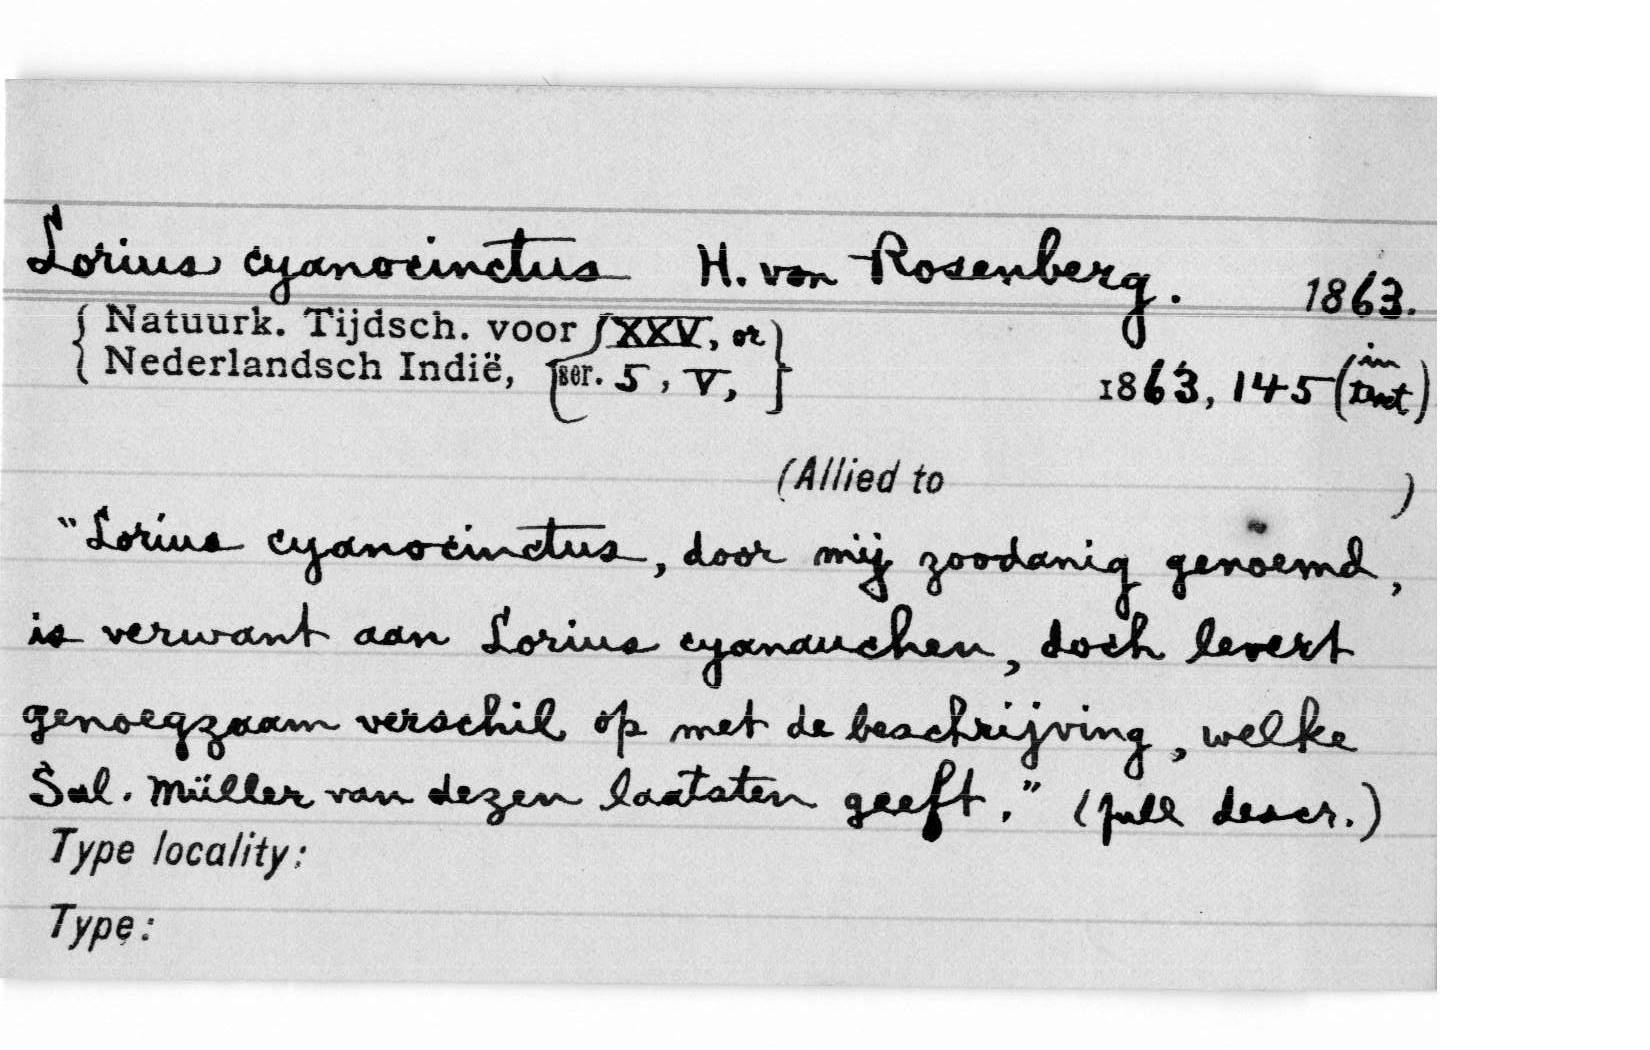 Lorius cyanocinctus H. von Rosenberg. 1863.
{ Natuurk. Tijdsch. voor { XXV, or }
{ Nederlandsch Indië, { ser. 5, V, } 1863, 145 (in text)
(Allied to )
"Lorius cyanocinctus, door mij zoodanig genoemd,
is verwant aan Lorius cyanauchen, doch levert
genoegzaam verschil op met de beschrijving, welke
Sal. Müller van dezen laatsten geeft." (full descr.)
Type locality:
Type: